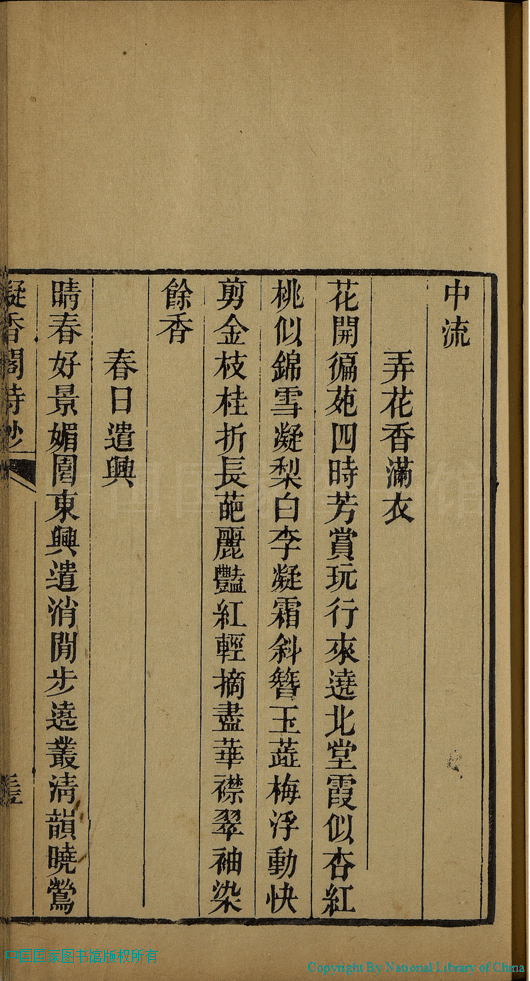 中流
弄花香滿衣
花開徧苑四時芳賞玩行來遶北堂霞似杏紅
桃似錦雪凝梨白李凝霜斜簪玉蕋梅浮動快
剪金枝桂折長葩麗豔紅輕摘盡華襟翠袖染
餘香
春日遣興
晴春好景媚園東興遣消閒步遶叢淸韻曉鶯
凝香閣詩鈔
中国国家图书馆版权所有
Copyright By National Library of China